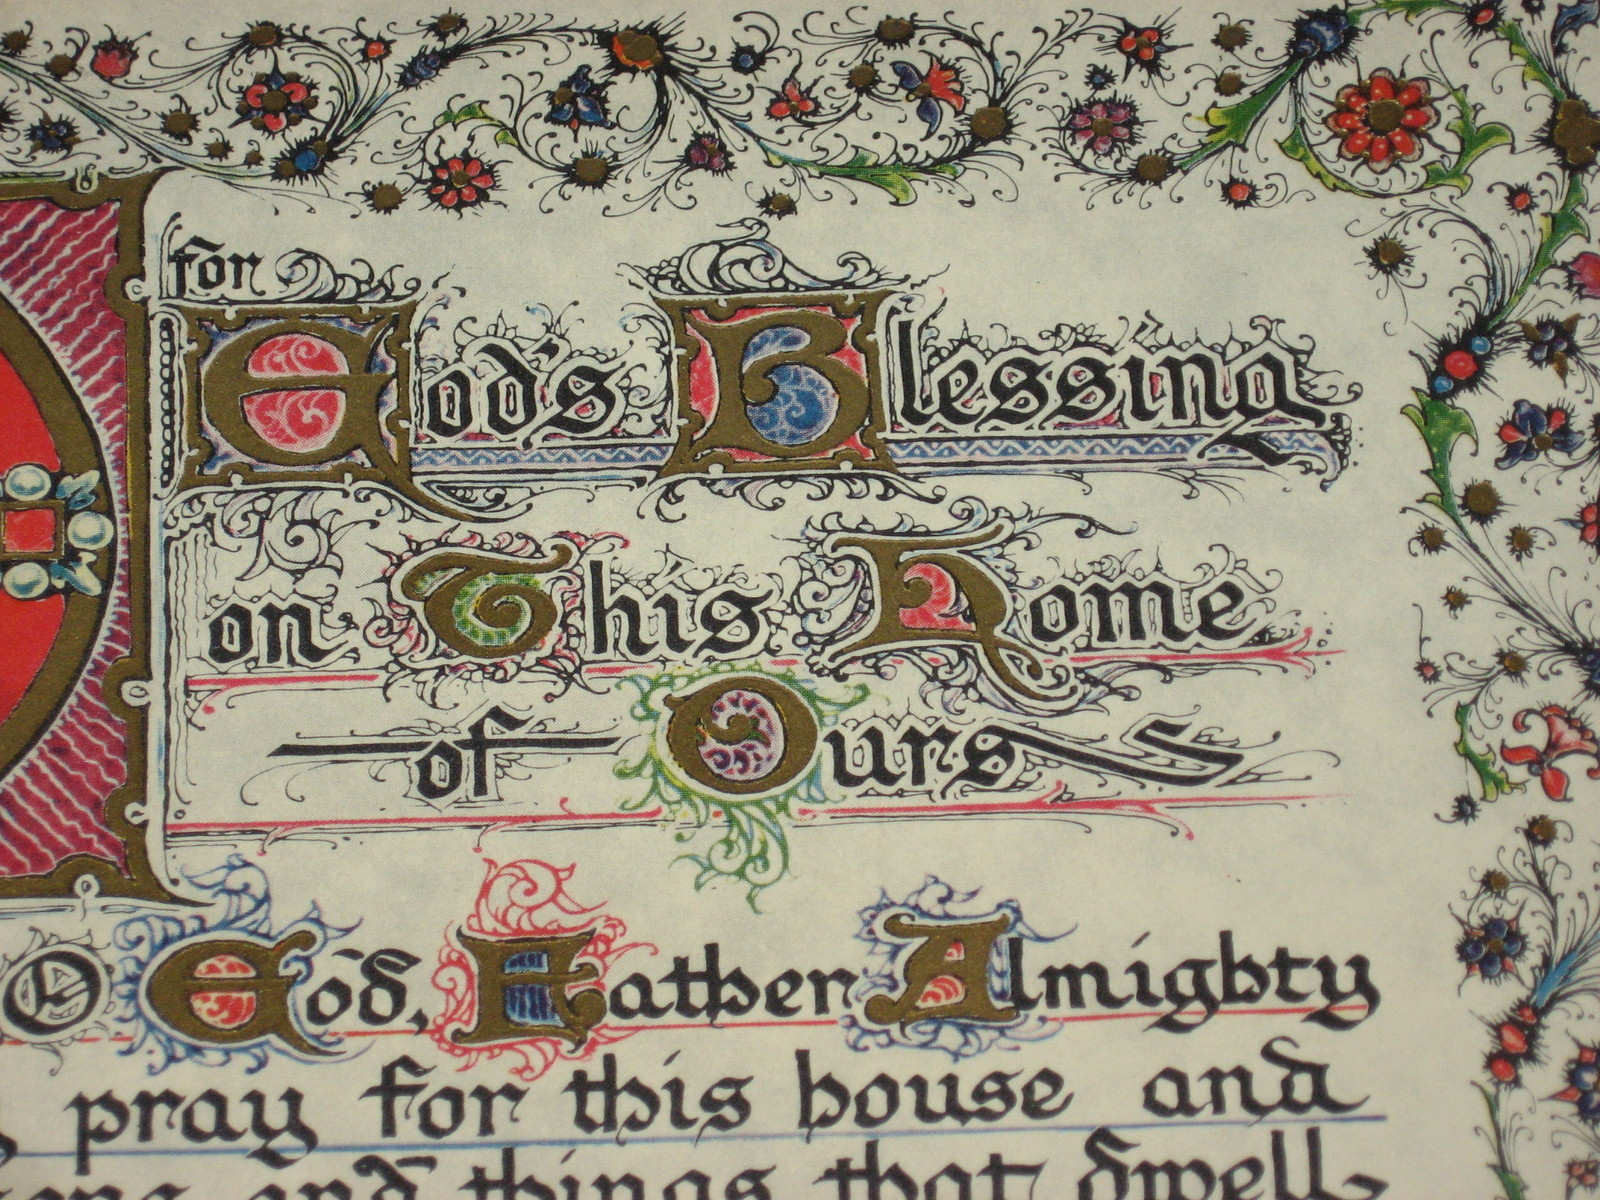 for
Gods Blessing
on This Home
of Ours
O God, Father Almighty
pray for this house and
and things that dwell